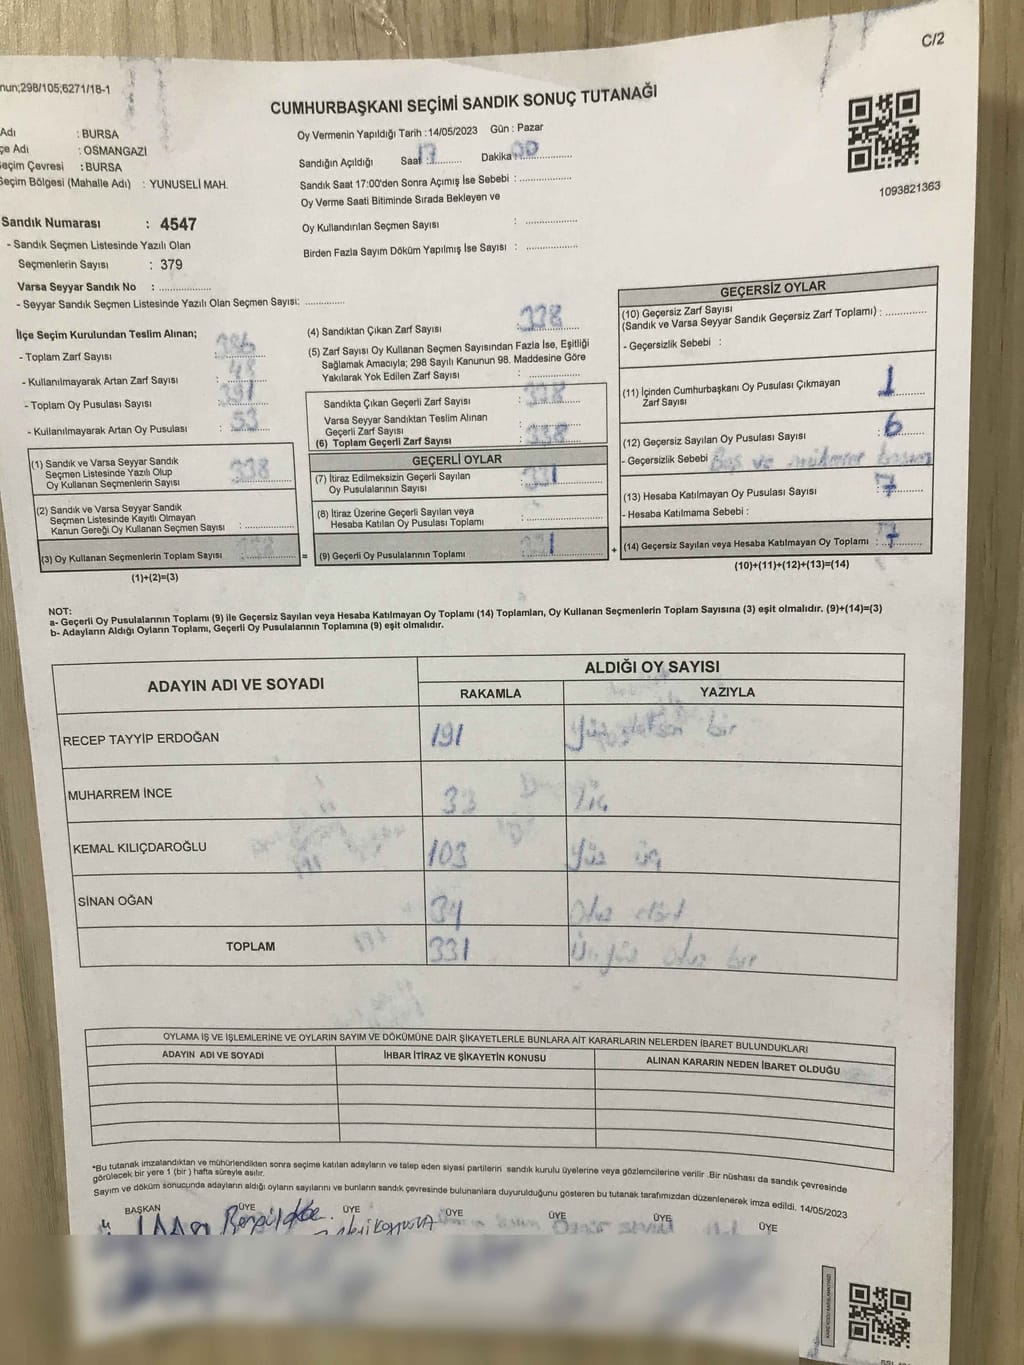 C/2
nun;298/105;6271/18-1
CUMHURBAŞKANI SEÇİMİ SANDIK SONUÇ TUTANAĞI
Adı : BURSA
çe Adı : OSMANGAZİ
Seçim Çevresi : BURSA
Seçim Bölgesi (Mahalle Adı) : YUNUSELİ MAH.
Oy Vermenin Yapıldığı Tarih : 14/05/2023 Gün : Pazar
Sandığın Açıldığı Saat : 17 Dakika : 00
Sandık Saat 17:00'den Sonra Açımış İse Sebebi :
Oy Verme Saati Bitiminde Sırada Bekleyen ve
Oy Kullandırılan Seçmen Sayısı :
Birden Fazla Sayım Döküm Yapılmış İse Sayısı :
1093821363
Sandık Numarası : 4547
- Sandık Seçmen Listesinde Yazılı Olan
Seçmenlerin Sayısı : 379
Varsa Seyyar Sandık No :
- Seyyar Sandık Seçmen Listesinde Yazılı Olan Seçmen Sayısı:
İlçe Seçim Kurulundan Teslim Alınan;
- Toplam Zarf Sayısı : 386
- Kullanılmayarak Artan Zarf Sayısı : 48
- Toplam Oy Pusulası Sayısı : 391
- Kullanılmayarak Artan Oy Pusulası : 53
(1) Sandık ve Varsa Seyyar Sandık
Seçmen Listesinde Yazılı Olup
Oy Kullanan Seçmenlerin Sayısı : 338
(2) Sandık ve Varsa Seyyar Sandık
Seçmen Listesinde Kayıtlı Olmayan
Kanun Gereği Oy Kullanan Seçmen Sayısı :
(3) Oy Kullanan Seçmenlerin Toplam Sayısı : 338
(1)+(2)=(3)
(4) Sandıktan Çıkan Zarf Sayısı : 338
(5) Zarf Sayısı Oy Kullanan Seçmen Sayısından Fazla İse, Eşitliği
Sağlamak Amacıyla; 298 Sayılı Kanunun 98. Maddesine Göre
Yakılarak Yok Edilen Zarf Sayısı :
Sandıkta Çıkan Geçerli Zarf Sayısı : 338
Varsa Seyyar Sandıktan Teslim Alınan
Geçerli Zarf Sayısı :
(6) Toplam Geçerli Zarf Sayısı : 338
GEÇERLİ OYLAR
(7) İtiraz Edilmeksizin Geçerli Sayılan
Oy Pusulalarının Sayısı : 331
(8) İtiraz Üzerine Geçerli Sayılan veya
Hesaba Katılan Oy Pusulası Toplamı :
= (9) Geçerli Oy Pusulalarının Toplamı : 331
GEÇERSİZ OYLAR
(10) Geçersiz Zarf Sayısı
(Sandık ve Varsa Seyyar Sandık Geçersiz Zarf Toplamı) :
- Geçersizlik Sebebi :
(11) İçinden Cumhurbaşkanı Oy Pusulası Çıkmayan
Zarf Sayısı : 1
(12) Geçersiz Sayılan Oy Pusulası Sayısı : 6
- Geçersizlik Sebebi : Boş ve mükerrer basım
(13) Hesaba Katılmayan Oy Pusulası Sayısı : 7
- Hesaba Katılmama Sebebi :
+ (14) Geçersiz Sayılan veya Hesaba Katılmayan Oy Toplamı : 7
(10)+(11)+(12)+(13)=(14)
NOT:
a- Geçerli Oy Pusulalarının Toplamı (9) ile Geçersiz Sayılan veya Hesaba Katılmayan Oy Toplamı (14) Toplamları, Oy Kullanan Seçmenlerin Toplam Sayısına (3) eşit olmalıdır. (9)+(14)=(3)
b- Adayların Aldığı Oyların Toplamı, Geçerli Oy Pusulalarının Toplamına (9) eşit olmalıdır.
ADAYIN ADI VE SOYADI ALDIĞI OY SAYISI
RAKAMLA YAZIYLA
RECEP TAYYİP ERDOĞAN 191 Yüz doksan bir
MUHARREM İNCE 33 Üç
KEMAL KILIÇDAROĞLU 103 Yüz üç
SİNAN OĞAN 34 Otuz dört
TOPLAM 331 Üç Yüz Otuz bir
OYLAMA İŞ VE İŞLEMLERİNE VE OYLARIN SAYIM VE DÖKÜMÜNE DAİR ŞİKAYETLERLE BUNLARA AİT KARARLARIN NELERDEN İBARET BULUNDUKLARI
ADAYIN ADI VE SOYADI İHBAR İTİRAZ VE ŞİKAYETİN KONUSU ALINAN KARARIN NEDEN İBARET OLDUĞU
*Bu tutanak imzalandıktan ve mühürlendikten sonra seçime katılan adayların ve talep eden siyasi partilerin sandık kurulu üyelerine veya gözlemcilerine verilir .Bir nüshası da sandık çevresinde
görülecek bir yere 1 (bir ) hafta süreyle asılır.
Sayım ve döküm sonucunda adayların aldığı oyların sayılarını ve bunların sandık çevresinde bulunanlara duyurulduğunu gösteren bu tutanak tarafımızdan düzenlenerek imza edildi. 14/05/2023
BAŞKAN ÜYE ÜYE ÜYE ÜYE ÜYE ÜYE